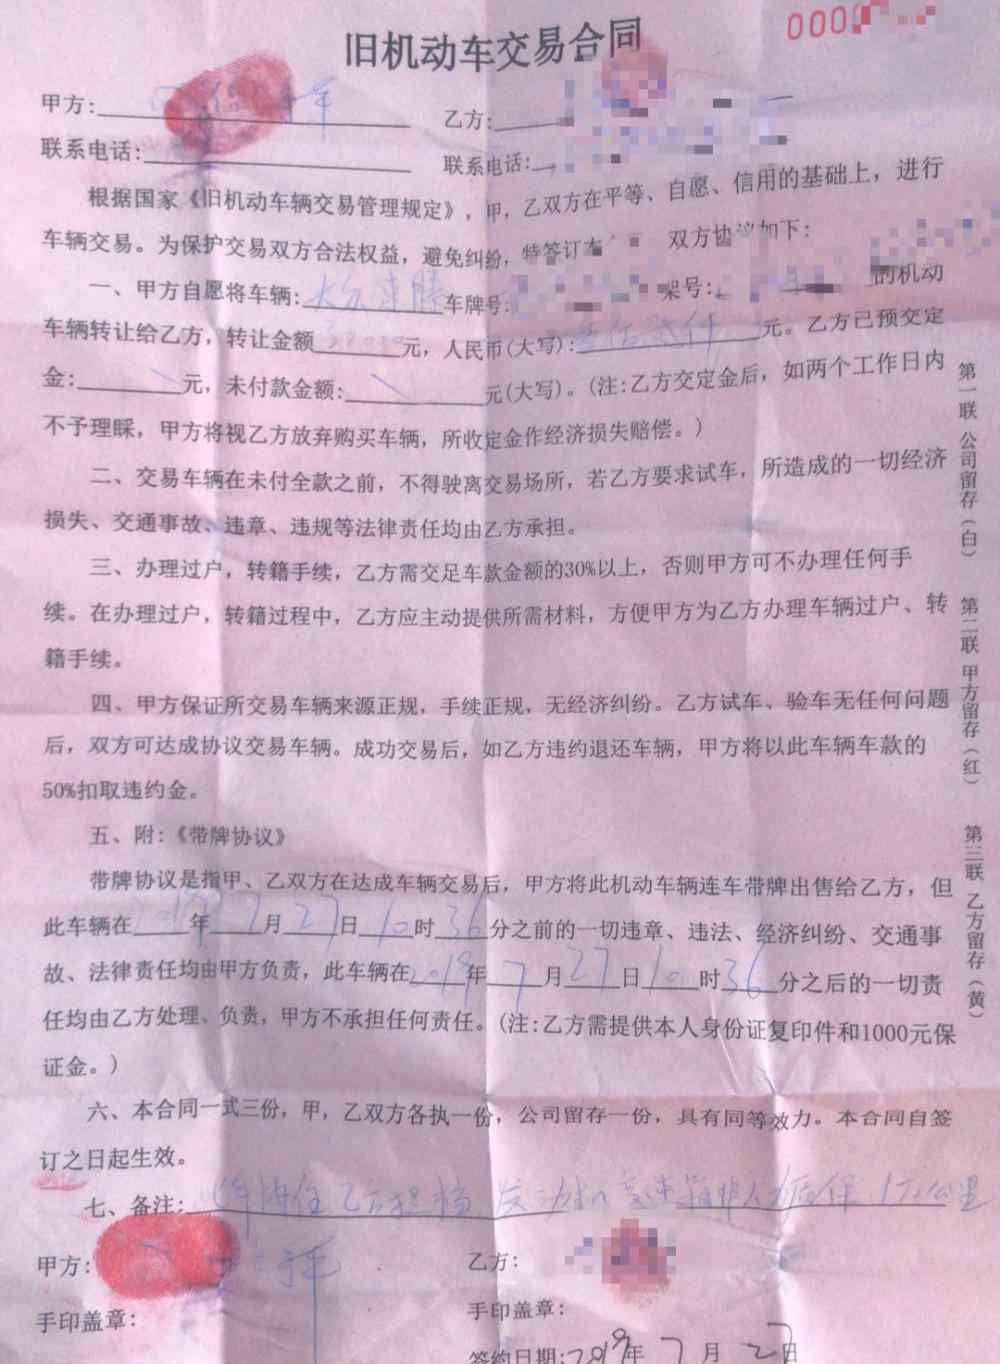 旧机动车交易合同
000
甲方: 乙方:
联系电话: 联系电话:
根据国家《旧机动车辆交易管理规定》，甲，乙双方在平等、自愿、信用的基础上，进行
车辆交易。为保护交易双方合法权益，避免纠纷，特签订本 双方协议如下:
一、甲方自愿将车辆: 大众速腾 车牌号: 架号: 的机动
车辆转让给乙方，转让金额 元，人民币(大写): 元。乙方已预交定
金: 元，未付款金额: 元(大写)。(注:乙方交定金后，如两个工作日内
不予理睬，甲方将视乙方放弃购买车辆，所收定金作经济损失赔偿。)
二、交易车辆在未付全款之前，不得驶离交易场所，若乙方要求试车，所造成的一切经济
损失、交通事故、违章、违规等法律责任均由乙方承担。
三、办理过户，转籍手续，乙方需交足车款金额的30%以上，否则甲方可不办理任何手
续。在办理过户，转籍过程中，乙方应主动提供所需材料，方便甲方为乙方办理车辆过户、转
籍手续。
四、甲方保证所交易车辆来源正规，手续正规，无经济纠纷。乙方试车、验车无任何问题
后，双方可达成协议交易车辆。成功交易后，如乙方违约退还车辆，甲方将以此车辆车款的
50%扣取违约金。
五、附:《带牌协议》
带牌协议是指甲、乙双方在达成车辆交易后，甲方将此机动车辆连车带牌出售给乙方，但
此车辆在2019年7月27日10时36分之前的一切违章、违法、经济纠纷、交通事
故、法律责任均由甲方负责，此车辆在2019年7月27日10时36分之后的一切责
任均由乙方处理、负责，甲方不承担任何责任。(注:乙方需提供本人身份证复印件和1000元保
证金。)
六、本合同一式三份，甲，乙双方各执一份，公司留存一份，具有同等效力。本合同自签
订之日起生效。
七、备注: 乙方提档 发动机变速箱 保1万公里
甲方: 乙方:
手印盖章: 手印盖章:
签约日期:2019年7月27日
第一联 公司留存(白)
第二联 甲方留存(红)
第三联 乙方留存(黄)